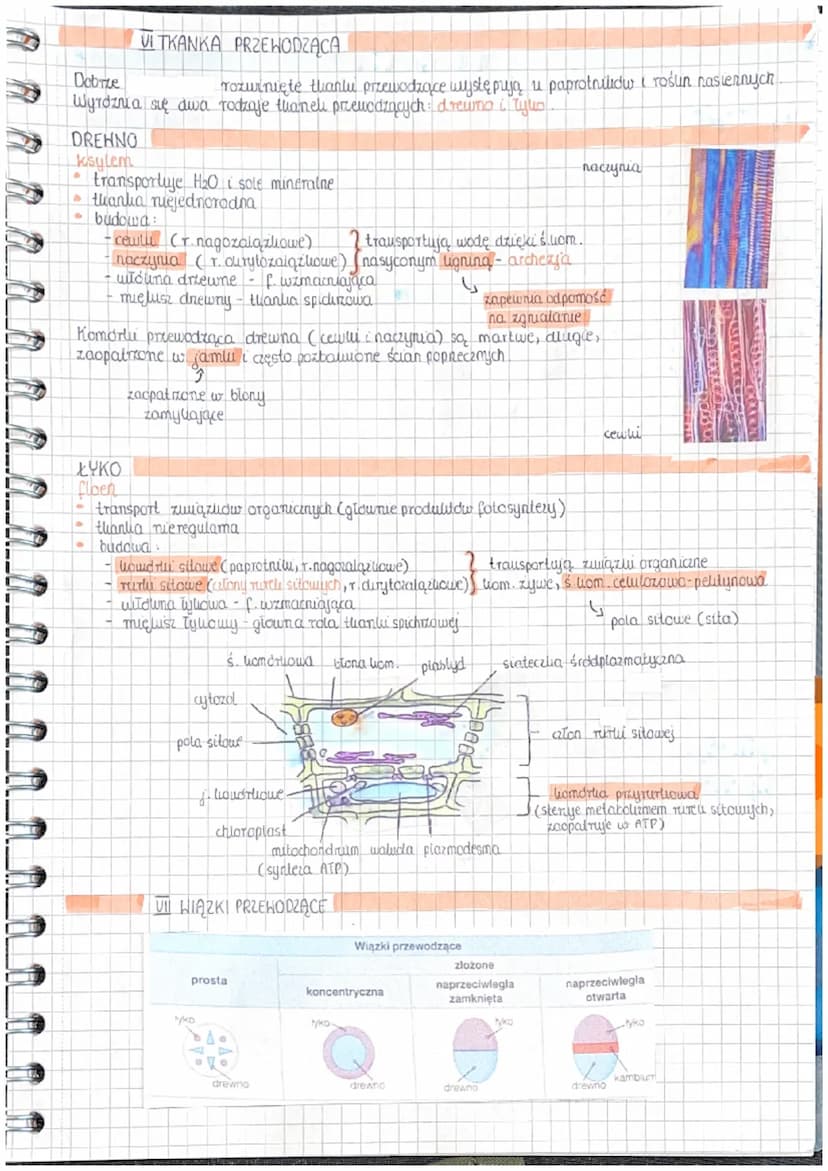 VI TKANKA PRZEWODZĄCA
Dobrze rozwinięte tkanki przewodzące występują u paprotników i roślin nasiennych.
Wyróżnia się dwa rodzaje tkanek przewodzących: drewno i łyko.
DREWNO
ksylem
• transportuje H₂O i sole mineralne
• tkanka niejednorodna
• budowa:
- cewki (r. nagozalążkowe)
- naczynia (r. okrytozalążkowe)
} transportują wodę dzięki ś. kom.
nasyconym ligniną - archezja
- włókna drzewne - f. wzmacniająca
- miękisz drzewny - tkanka spichrzowa
zapewnia odporność
na zgniatanie
naczynia
Komórki przewodzące drewna (cewki i naczynia) są martwe, długie,
zaopatrzone w jamki i często pozbawione ścian poprzecznych
zaopatrzone w błony
zamykające
cewki
ŁYKO
floem
• transport związków organicznych (głównie produktów fotosyntezy)
• tkanka nieregularna
• budowa:
- komórki sitowe (paprotniki, r. nagozalążkowe)
- rurki sitowe (człony rurek sitowych, r. okrytozalążkowe)
} transportują związki organiczne
kom. żywe, ś. kom. celulozowo-pektynowa
- włókna łykowa - f. wzmacniająca
- miękisz łykowy - główna rola tkanki spichrzowej
pola sitowe (sita)
ś. komórkowa błona kom. plastyd siateczka śródplazmatyczna
cytozol
pola sitowe
człon rurki sitowej
j. komórkowe
chloroplast
mitochondrium wakuola plazmodesma
(synteza ATP)
komórka przyrurkowa
(steruje metabolizmem rurek sitowych,
zaopatruje w ATP)
VII WIĄZKI PRZEWODZĄCE
Wiązki przewodzące
prosta
złożone
koncentryczna
naprzeciwległa
zamknięta
naprzeciwległa
otwarta
łyko
drewno
łyko
drewno
łyko
drewno
łyko
drewno
kambium